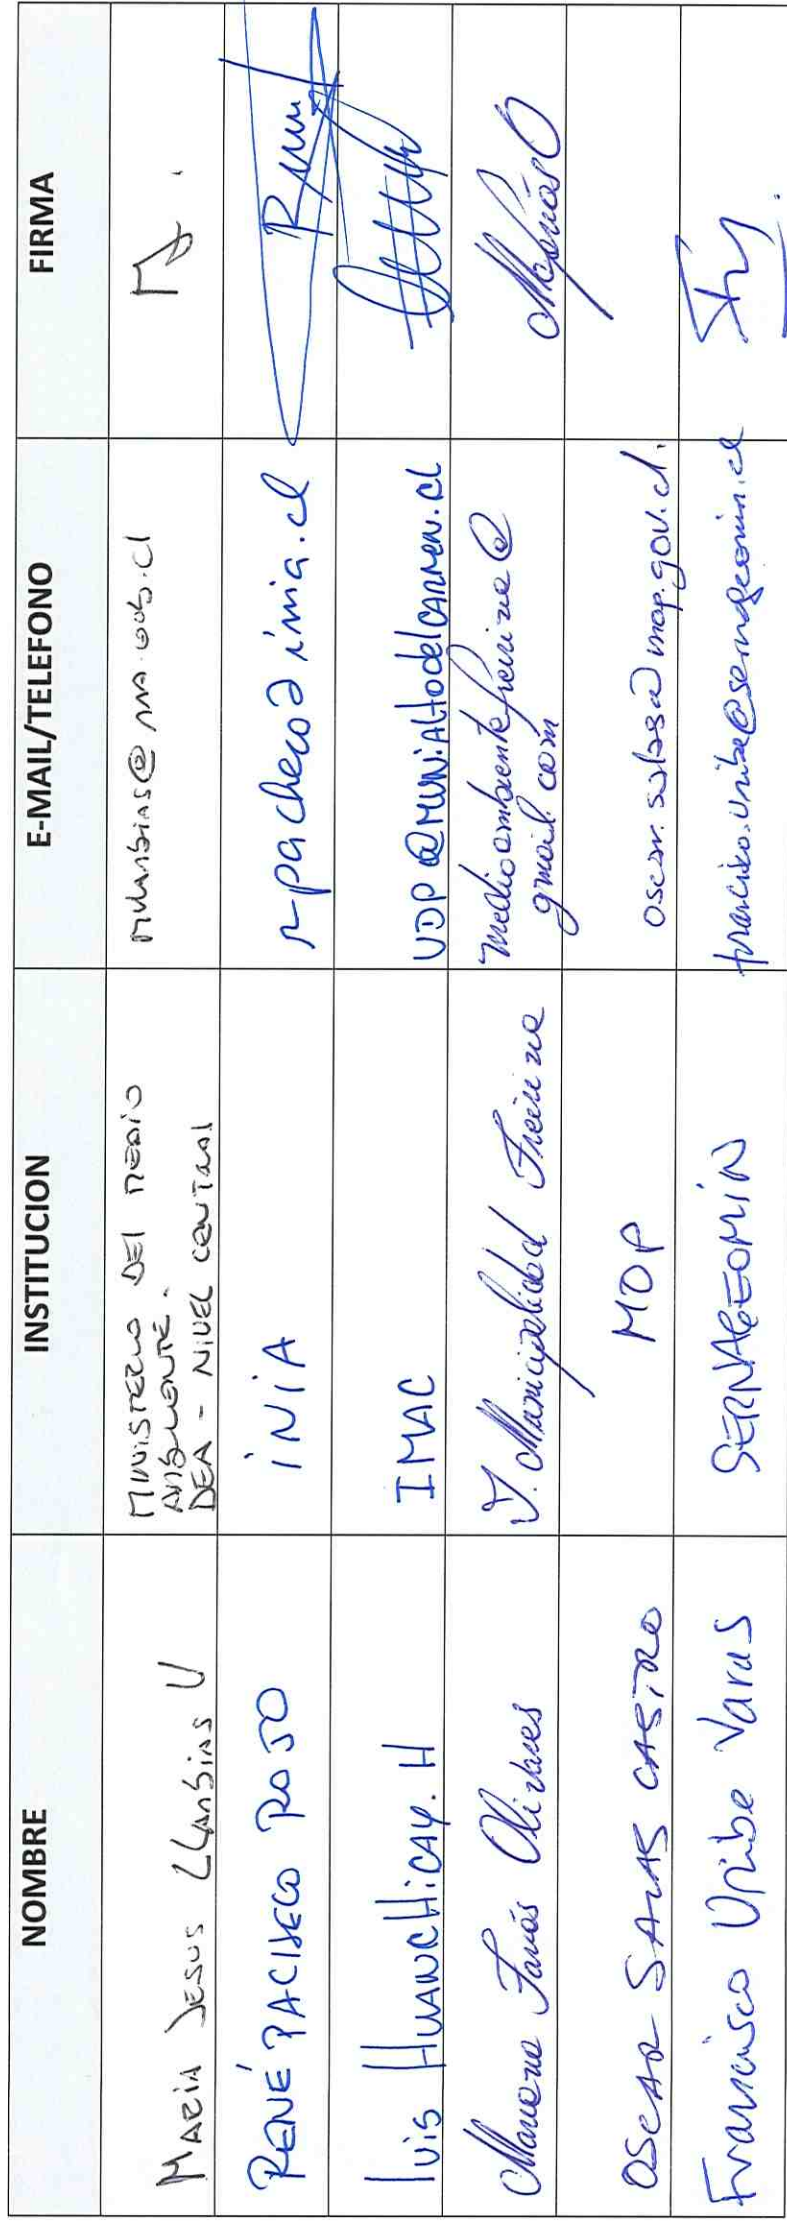 NOMBRE INSTITUCION E-MAIL/TELEFONO FIRMA
MARIA JESUS LLANBIAS U MINISTERIO DEL MEDIO AMBIENTE. DEA - NIVEL CENTRAL
RENÉ PACHECO ROJO INIA rpacheco@inia.cl
LUIS HUANCHICAY. H IMAC UDP@MUNIALTODELCARMEN.CL
Mariana Farías Olivares I. Municipalidad Freirina medioambientefreirina@
gmail.com
OSCAR SALAS CASTRO MOP oscar.salas@mop.gov.cl.
Francisco Uribe Varas SERNAGEOMIN francisco.uribe@sernageomin.cl